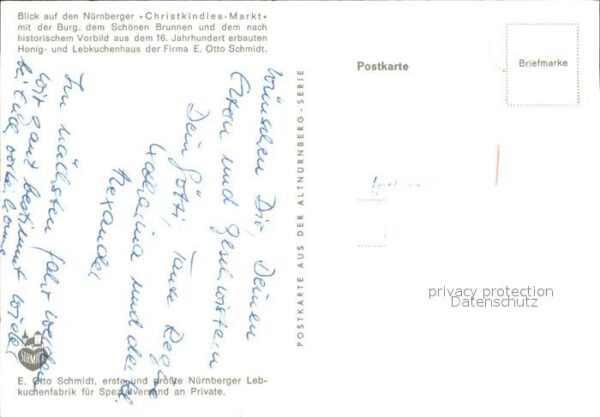 Blick auf den Nürnberger »Christkindles-Markt«
mit der Burg, dem Schönen Brunnen und dem nach
historischem Vorbild aus dem 16. Jahrhundert erbauten
Honig- und Lebkuchenhaus der Firma E. Otto Schmidt.
Postkarte
Briefmarke
POSTKARTE AUS DER ALTNÜRNBERG-SERIE
wünschen Dir, Deinen
Eltern und Geschwistern
Dein Götti, Tante Regine
Katharina und der kl.
Alexander
Im nächsten Jahr werden
wir ganz bestimmt wieder
bei Euch
SCHMIDT
E. Otto Schmidt, erste und größte Nürnberger Leb-
kuchenfabrik für Spezialversand an Private.
privacy protection
Datenschutz